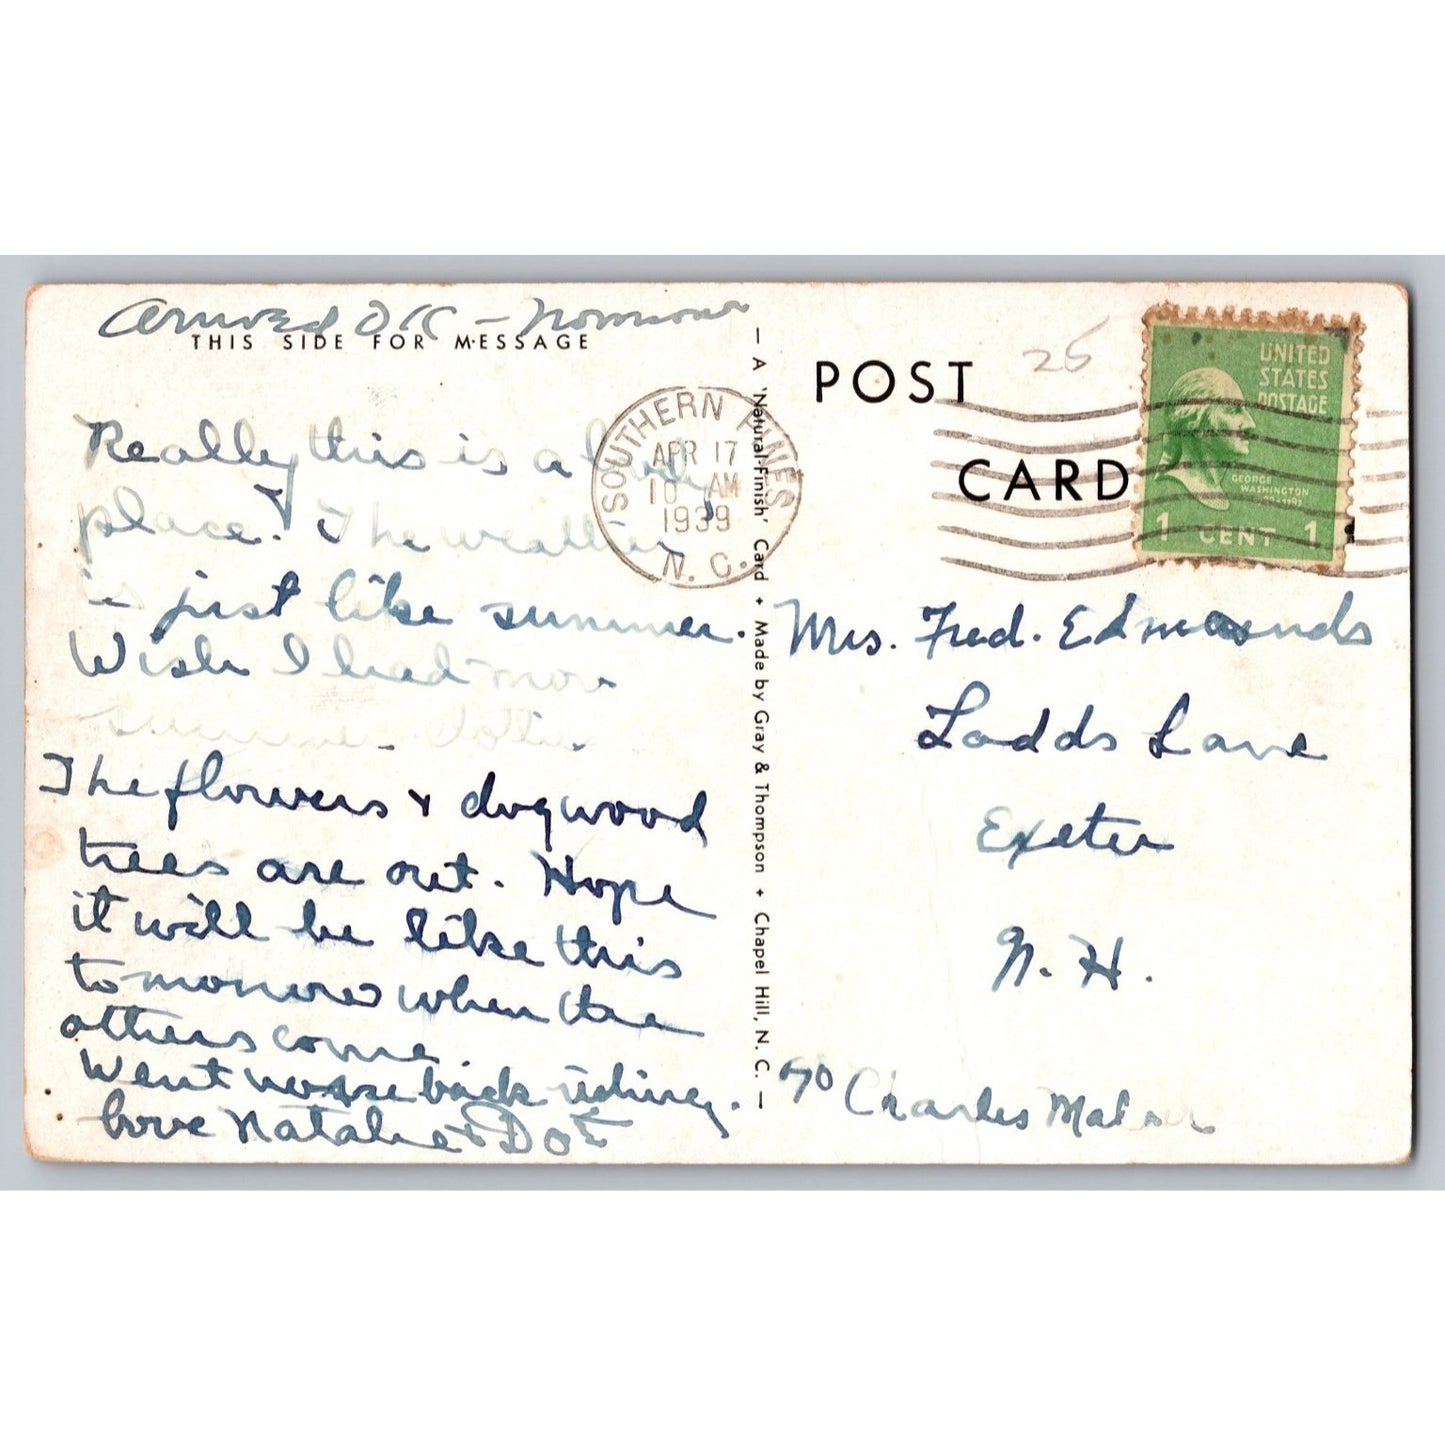 Arrived O.K. –
THIS SIDE FOR MESSAGE
Really this is a lovely
place. The weather
is just like summer.
Wish I had more
summer clothes.
The flowers & dogwood
trees are out. Hope
it will be like this
tomorrow when the
others come.
Went horse back riding.
Love Natalie & Dot
SOUTHERN PINES
APR 17
10 AM
1939
N. C.
— A 'Natural-Finish' Card ✦ Made by Gray & Thompson ✦ Chapel Hill, N. C. —
POST
CARD
25
UNITED
STATES
POSTAGE
GEORGE
WASHINGTON
1 CENT 1
Mrs. Fred. Edmunds
Ladds Lane
Exeter
N. H.
℅ Charles